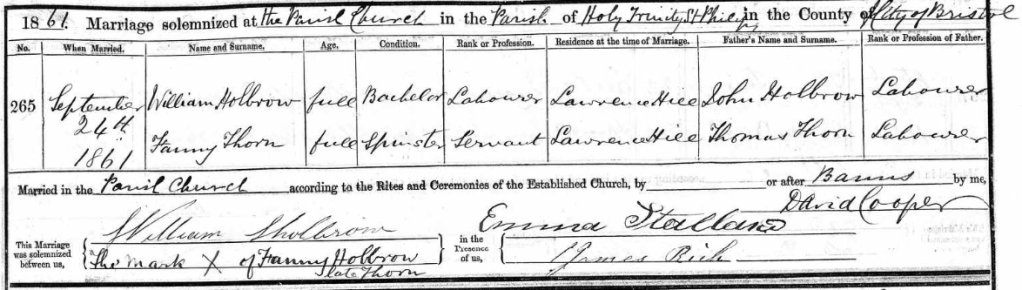 1861. Marriage solemnized at the Parish Church in the Parish of Holy Trinity St Philips in the County of City of Bristol
No. When Married. Name and Surname. Age. Condition. Rank or Profession. Residence at the time of Marriage. Father's Name and Surname. Rank or Profession of Father.
265 September 24th 1861 William Holbrow full Bachelor Labourer Lawrence Hill John Holbrow Labourer
Fanny Thorn full Spinster Servant Lawrence Hill Thomas Thorn Labourer
Married in the Parish Church according to the Rites and Ceremonies of the Established Church, by or after Banns by me,
David Cooper
This Marriage was solemnized between us,
William Holbrow
The mark X of Fanny Holbrow
late Thorn
in the Presence of us,
Emma
James Rich